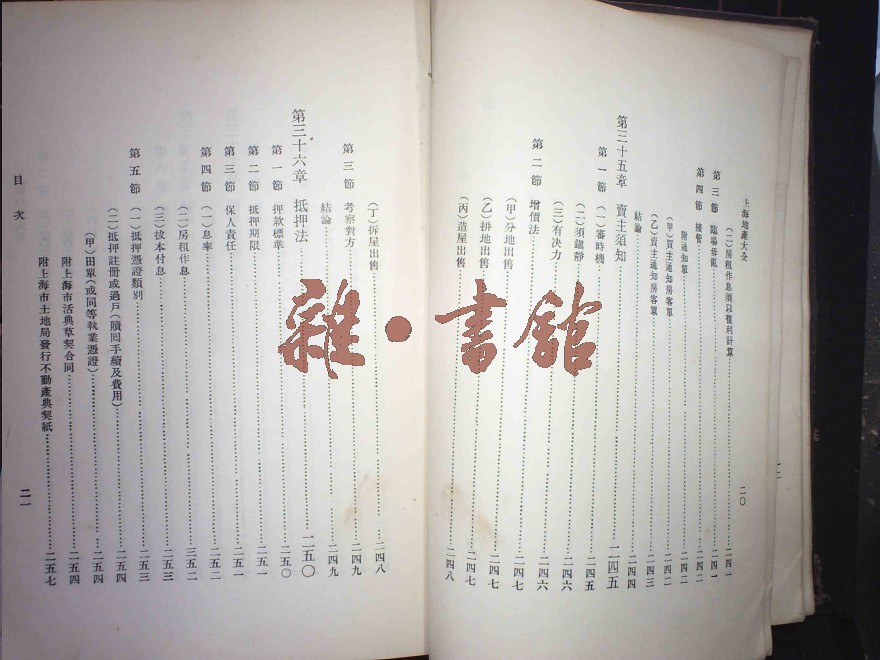 上海地產大全
二〇
(二)房租作息須以複利計算……二四一
第三節 臨場發亂……二四一
第四節 接管……二四二
附通知單……二四二
(甲)買主通知房客單……二四二
(乙)賣主通知房客單……二四三
結論……二四四
第三十五章 賣主須知……二四五
第一節 (一)審時機……二四五
(二)須鎮靜……二四六
(三)有決力……二四六
第二節 增價法……二四六
(甲)分地出售……二四七
(乙)拼地出售……二四七
(丙)造屋出售……二四八
(丁)拆屋出售……二四八
第三節 考察對方……二四九
結論……二四九
第三十六章 抵押法……二五〇
第一節 押款標準……二五〇
第二節 抵押期限……二五一
第三節 保人責任……二五一
第四節 (一)息率……二五二
(二)房租作息……三五二
(三)拔本付息……三五二
第五節 (一)抵押憑證類別……二五三
(二)抵押註冊或過戶(贖回手續及費用)……二五四
(甲)田單(或同等執業憑證)……二五四
附上海市活典草契合同……二五四
附上海市土地局發行不動產典契紙……二五七
目次
二一
雜·書館